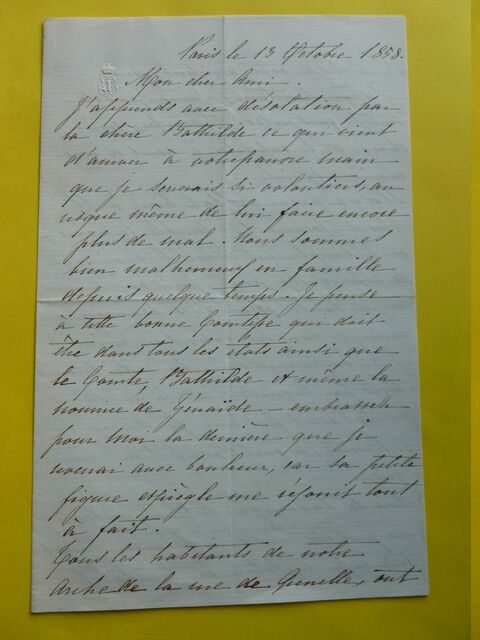 Paris le 13 Octobre 1858.
Mon cher Ami.
J'apprends avec désolation par
la chere Bathilde ce qui vient
d'arriver à votre pauvre main
que je serrerais si volontiers, au
risque même de lui faire encore
plus de mal. Nous sommes
bien malheureux en famille
depuis quelque temps. Je pense
à cette bonne Comtesse qui doit
être dans tous les états ainsi que
le Comte, Bathilde et même la
nounou de Zénaïde – embrassez
pour moi la dernière que je
verrai avec bonheur, car sa petite
figure espiègle me réjouit tout
à fait.
Tous les habitants de notre
arche de la rue de Grenelle, ont